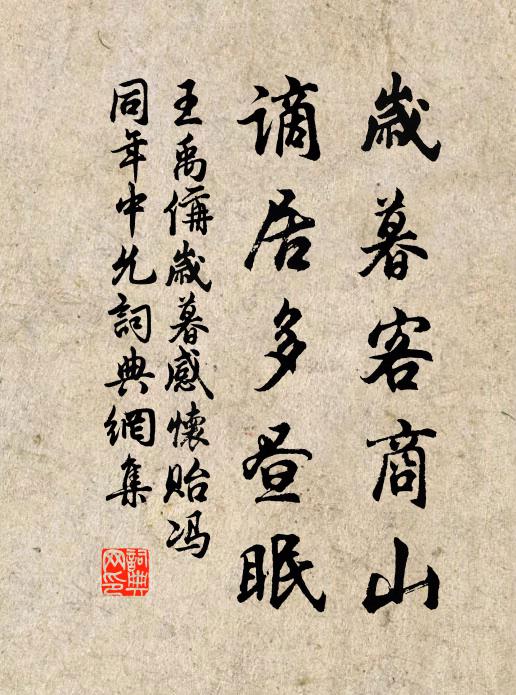 歲暮客商山
謫居多昼眠
王禹偁歲暮感懷貽冯
同年中允詞典網集
詞典
网印